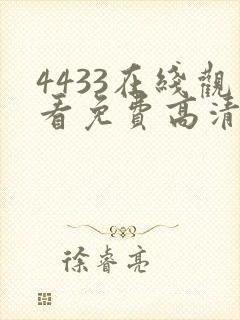 4433在綫觀
看免費高清
徐睿亮